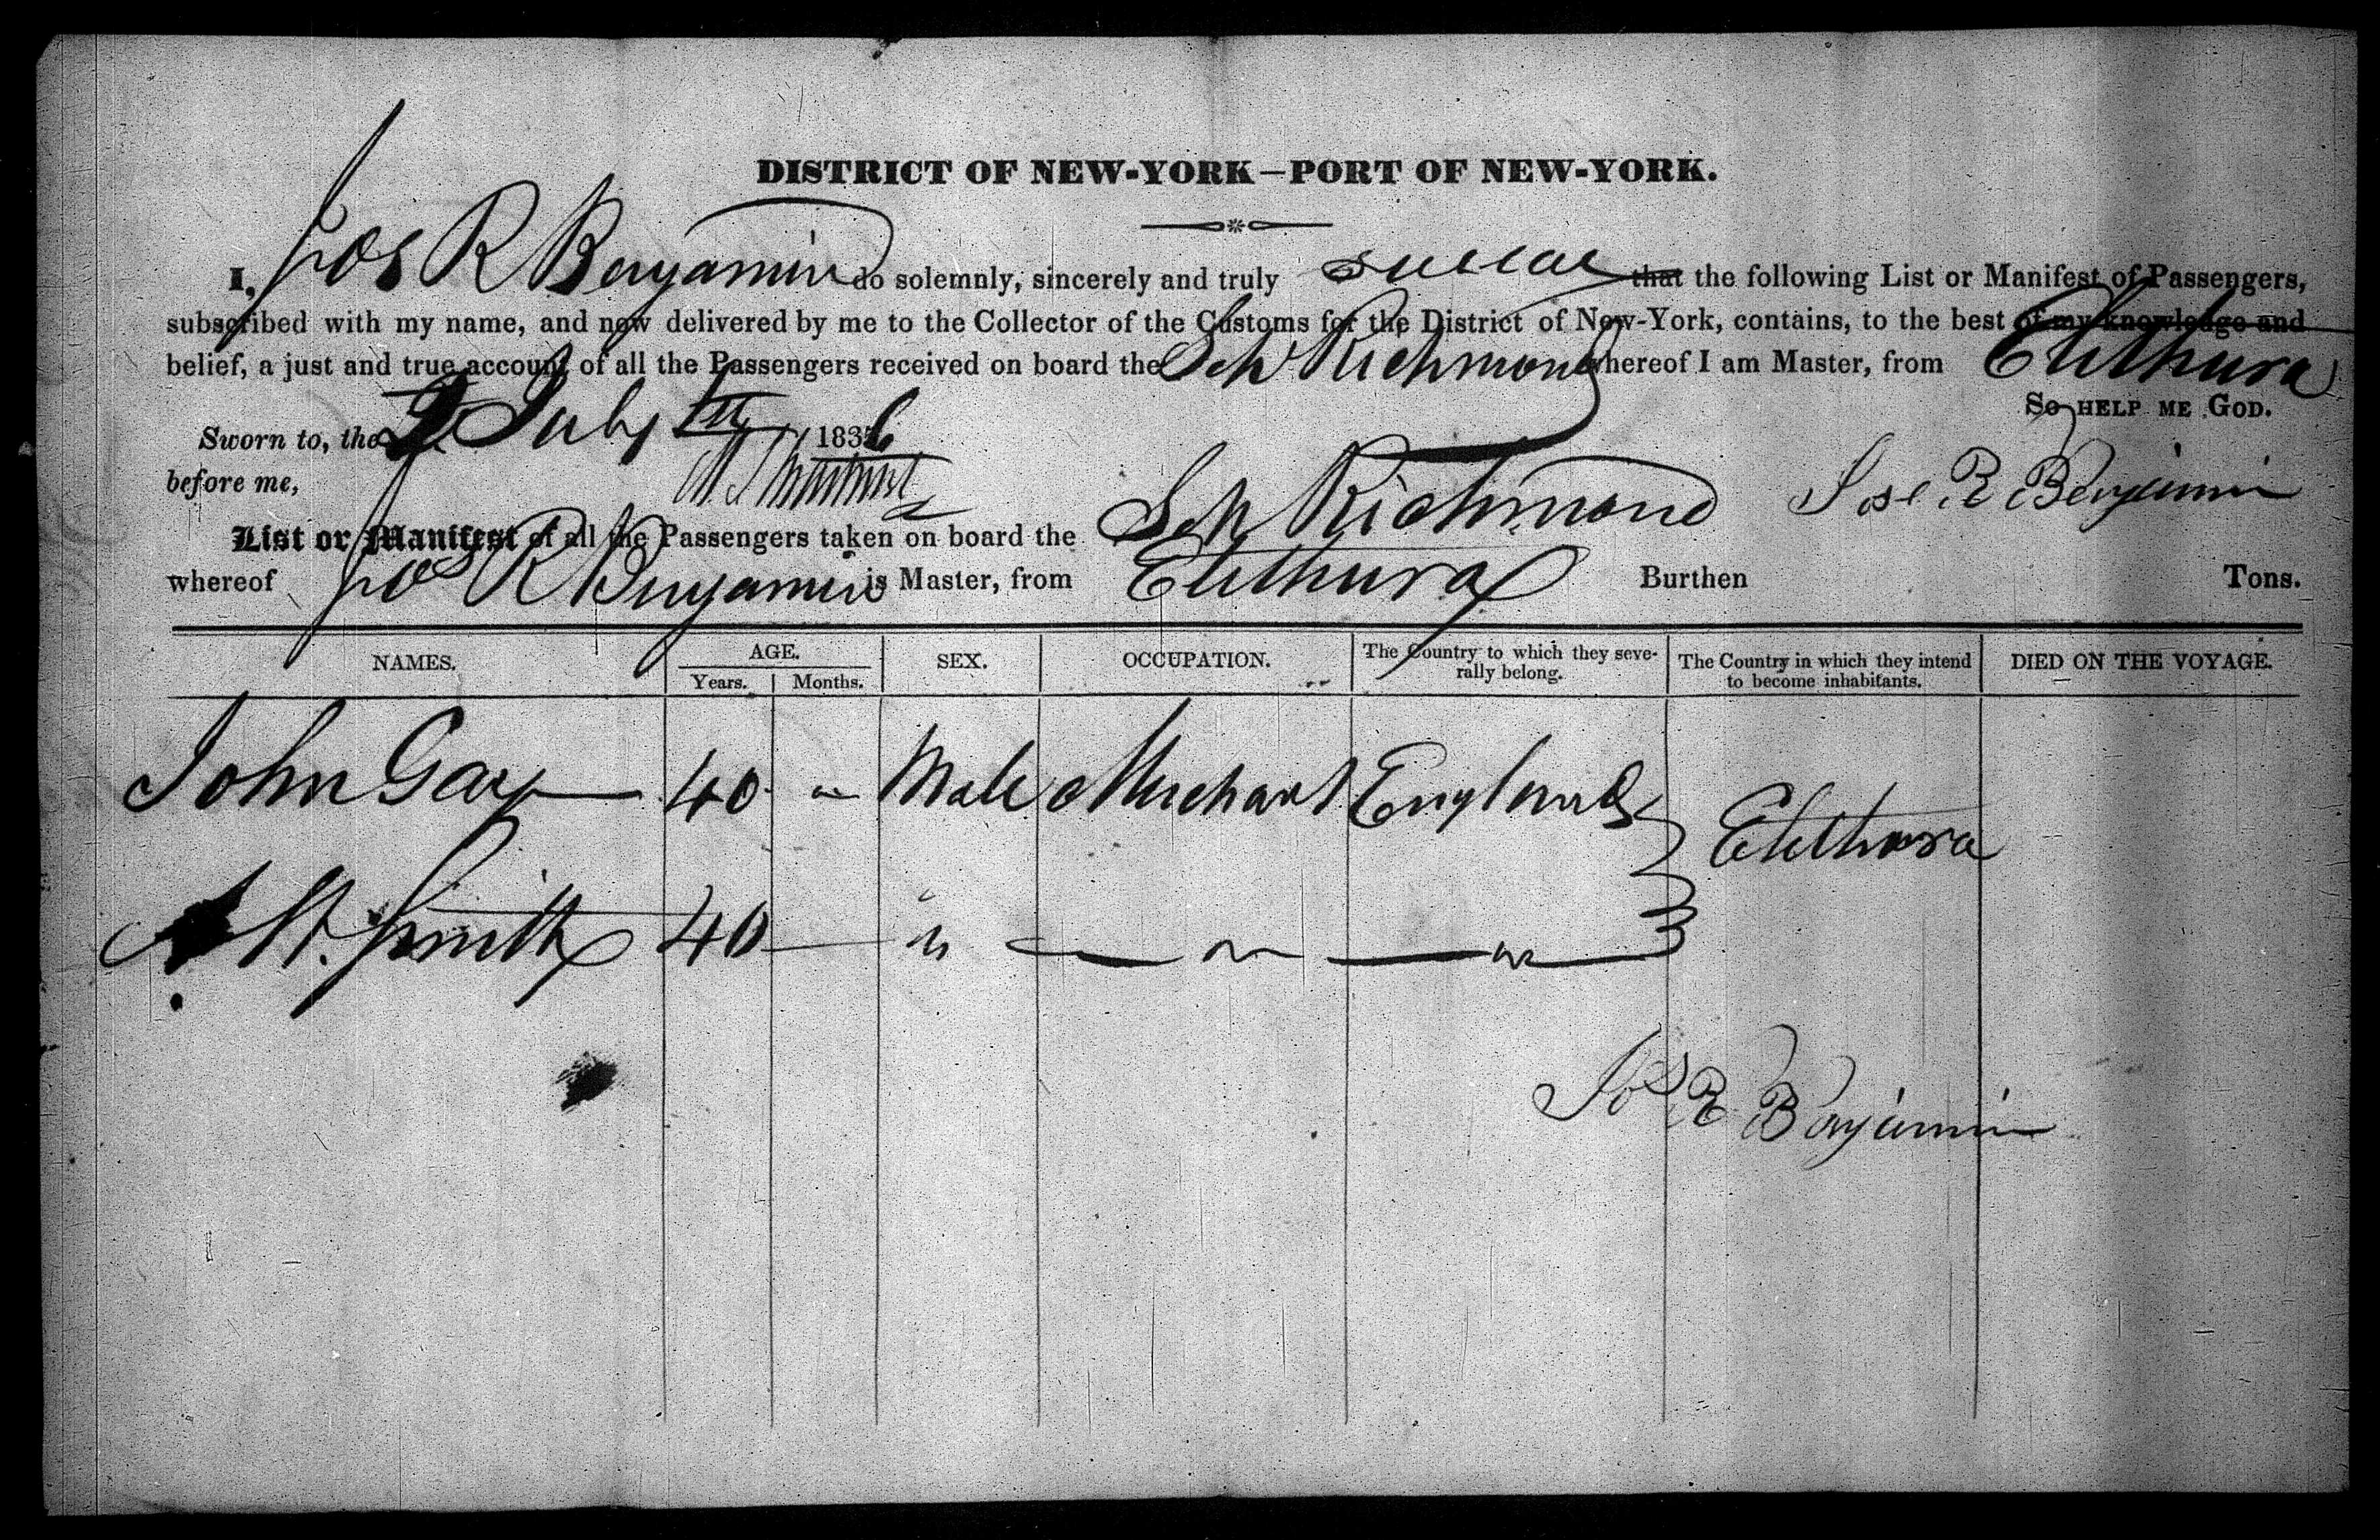 DISTRICT OF NEW-YORK—PORT OF NEW-YORK.
I, Jos R Benjamin do solemnly, sincerely and truly swear that the following List or Manifest of Passengers,
subscribed with my name, and now delivered by me to the Collector of the Customs for the District of New-York, contains, to the best of my knowledge and
belief, a just and true account of all the Passengers received on board the Sch Richmond whereof I am Master, from Eluthura
So HELP ME GOD.
Sworn to, the 2 July 1836
before me,
Jos R Benjamin
List or Manifest of all the Passengers taken on board the Sch Richmond
whereof Jos R Benjamin is Master, from Eluthura Burthen Tons.
NAMES. AGE. SEX. OCCUPATION. The Country to which they seve- The Country in which they intend DIED ON THE VOYAGE.
Years. Months. rally belong. to become inhabitants.
John Gay 40 " Male Merchant England
Eluthura
W. Smith 40 " " "
Jos R Benjamin